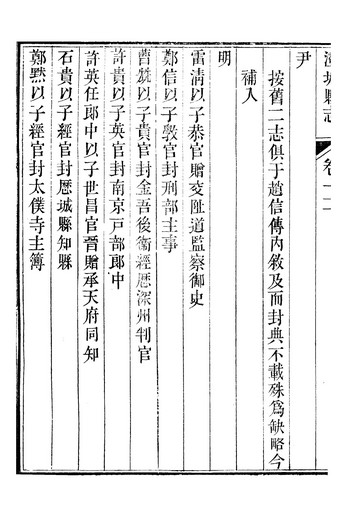 城縣志
卷十二
尹
按舊二志俱于趙信傳內敘及而封典不載殊爲缺略今
補入
明
雷清以子恭官贈交阯道監察御史
鄭信以子敩官封刑部主事
曹兟以子貴官封金吾後衞經歷深州判官
許貴以子英官封南京戶部郎中
許英任郎中以子世昌官晉贈承天府同知
石貴以子經官封歷城縣知縣
鄭默以子經官封太僕寺主簿